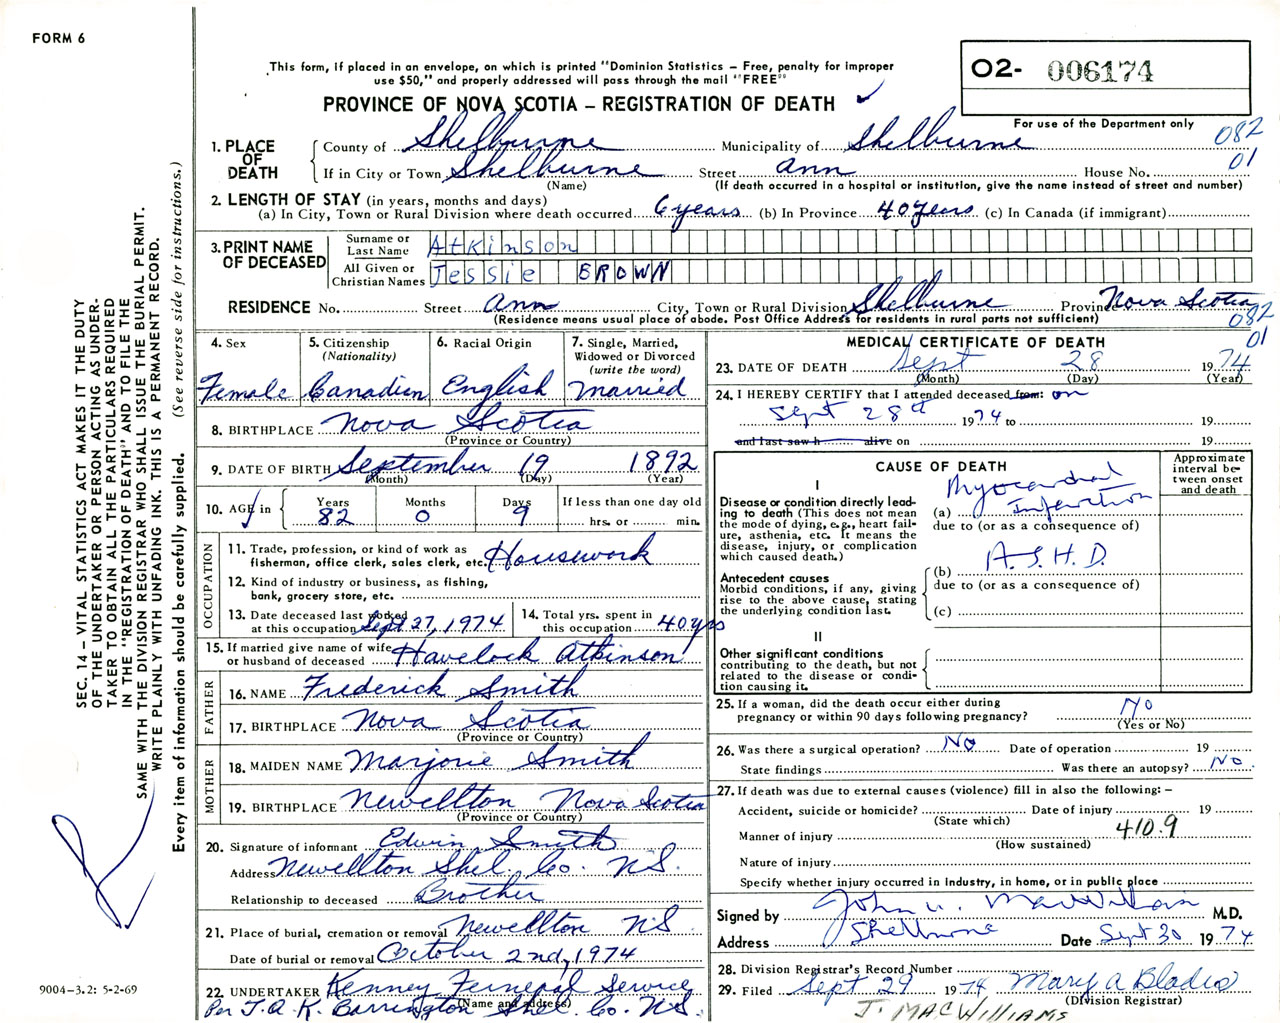 FORM 6
This form, if placed in an envelope, on which is printed "Dominion Statistics – Free, penalty for improper
use $50," and properly addressed will pass through the mail "FREE"
PROVINCE OF NOVA SCOTIA – REGISTRATION OF DEATH
02- 006174
For use of the Department only
082
01
1. PLACE OF DEATH
County of Shelburne Municipality of Shelburne
If in City or Town Shelburne Street Ann House No.
(Name) (If death occurred in a hospital or institution, give the name instead of street and number)
2. LENGTH OF STAY (in years, months and days)
(a) In City, Town or Rural Division where death occurred 6 years (b) In Province 40 years (c) In Canada (if immigrant)
3. PRINT NAME OF DECEASED
Surname or Last Name Atkinson
All Given or Christian Names Jessie BROWN
RESIDENCE No. Street Ann City, Town or Rural Division Shelburne Province Nova Scotia
(Residence means usual place of abode. Post Office Address for residents in rural parts not sufficient)
082
01
4. Sex Female
5. Citizenship (Nationality) Canadian
6. Racial Origin English
7. Single, Married, Widowed or Divorced (write the word) Married
8. BIRTHPLACE Nova Scotia
(Province or Country)
9. DATE OF BIRTH September 19 1892
(Month) (Day) (Year)
10. AGE in Years 82 Months 0 Days 9 If less than one day old hrs. or min.
OCCUPATION
11. Trade, profession, or kind of work as
fisherman, office clerk, sales clerk, etc. Housework
12. Kind of industry or business, as fishing,
bank, grocery store, etc.
13. Date deceased last worked
at this occupation Sept 27, 1974
14. Total yrs. spent in
this occupation 40 yrs
15. If married give name of wife
or husband of deceased Havelock Atkinson
FATHER
16. NAME Frederick Smith
17. BIRTHPLACE Nova Scotia
(Province or Country)
MOTHER
18. MAIDEN NAME Marjorie Smith
19. BIRTHPLACE Newellton Nova Scotia
(Province or Country)
20. Signature of informant Edwin Smith
Address Newellton Shel. Co. N.S.
Relationship to deceased Brother
21. Place of burial, cremation or removal Newellton N.S
Date of burial or removal October 2nd, 1974
22. UNDERTAKER Kenney Funepal Service
(Name and address)
Per J.A.K. Barrington Shel. Co. N.S.
MEDICAL CERTIFICATE OF DEATH
23. DATE OF DEATH Sept 28 1974
(Month) (Day) (Year)
24. I HEREBY CERTIFY that I attended deceased from: on
Sept 28th 1974 to 19
and last saw h alive on 19
CAUSE OF DEATH
Approximate interval between onset and death
I
Disease or condition directly lead-
ing to death (This does not mean
the mode of dying, e.g., heart fail-
ure, asthenia, etc. It means the
disease, injury, or complication
which caused death.)
(a) Myocardial Infarction
due to (or as a consequence of)
Antecedent causes
Morbid conditions, if any, giving
rise to the above cause, stating
the underlying condition last.
(b) A.S.H.D.
due to (or as a consequence of)
(c)
II
Other significant conditions
contributing to the death, but not
related to the disease or condi-
tion causing it.
25. If a woman, did the death occur either during
pregnancy or within 90 days following pregnancy? No
(Yes or No)
26. Was there a surgical operation? No Date of operation 19
State findings Was there an autopsy? No
27. If death was due to external causes (violence) fill in also the following: –
Accident, suicide or homicide? Date of injury 19
(State which)
410.9
Manner of injury
(How sustained)
Nature of injury
Specify whether injury occurred in industry, in home, or in public place
Signed by John MacWilliam M.D.
Address Shelburne Date Sept 30 1974
28. Division Registrar's Record Number
29. Filed Sept 29 1974 Mary A Blades
(Division Registrar)
J. MACWILLIAMS
SEC. 14 – VITAL STATISTICS ACT MAKES IT THE DUTY
OF THE UNDERTAKER OR PERSON ACTING AS UNDER-
TAKER TO OBTAIN ALL THE PARTICULARS REQUIRED
IN THE "REGISTRATION OF DEATH" AND TO FILE THE
SAME WITH THE DIVISION REGISTRAR WHO SHALL ISSUE THE BURIAL PERMIT.
WRITE PLAINLY WITH UNFADING INK. THIS IS A PERMANENT RECORD.
Every item of information should be carefully supplied. (See reverse side for instructions.)
9004–3.2: 5-2-69